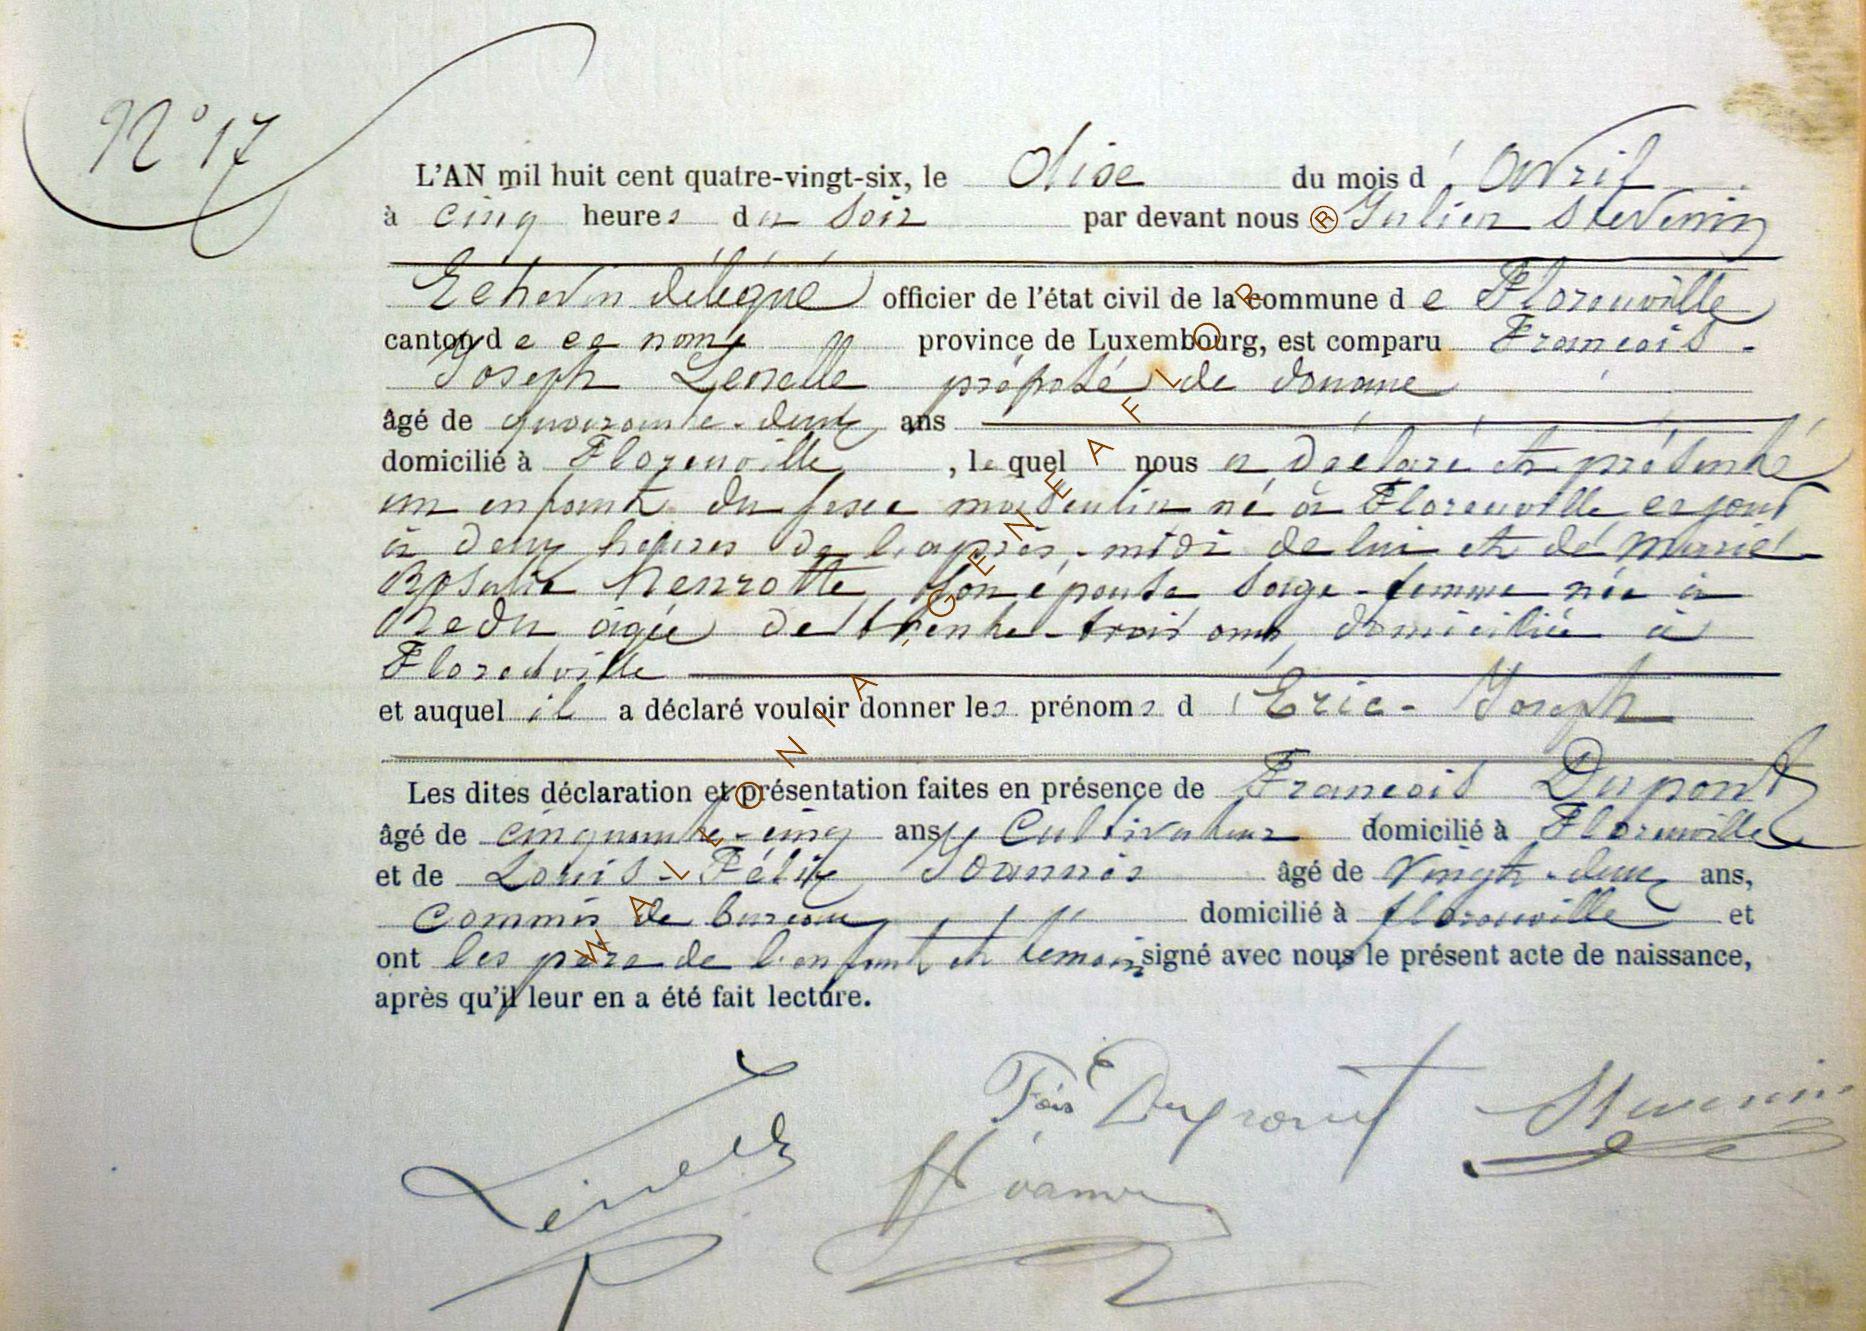 N° 17
L'AN mil huit cent quatre-vingt-six, le dise du mois d' Avril
à cinq heures du soir par devant nous Julien Stevenin
Echevin délégué officier de l'état civil de la commune de Florenville
canton de ce nom province de Luxembourg, est comparu François-
Joseph préposé de douane
âgé de quarante-deux ans
domicilié à Florenville, lequel nous a déclaré et présenté
un enfant du sexe masculin né à Florenville ce jour
à deux heures de l'après-midi de lui et de Marie
Rosalie Henrotte son épouse sage-femme née à
Redu âgée de trente-trois ans, domiciliée à
Florenville
et auquel il a déclaré vouloir donner les prénoms d' Eric-Joseph
Les dites déclaration et présentation faites en présence de François Dupont
âgé de cinquante-cinq ans, Cultivateur domicilié à Florenville
et de Louis-Félix Joannès âgé de vingt-deux ans,
commis de bureau domicilié à florenville et
ont les père de l'enfant et temoins signé avec nous le présent acte de naissance,
après qu'il leur en a été fait lecture.
Fois Dupont Stevenin
WALLONIA - GENEAFLOR ®